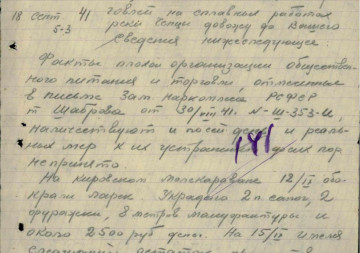 18 сент 41
5-3
говест на сплавных работах
реки Сенцы довожу до Вашего
сведения нижеследующее.
Факты плохой организации обществен
ного питания и торговли, отмеченные
в письме Зам. наркома РСФСР
т Шаврова от 30/VIII 41. N-Ш-353-И,
налицествуют и посей день и реаль
ных мер к их устранению до сих пор
не принято
181
На Кировском лесокараване 12/IX обо
крали ларек. Украдено 2 п. сапог, 2
фуражки, 8 метров мануфактуры и
около 2500 руб денег. На 15/IX